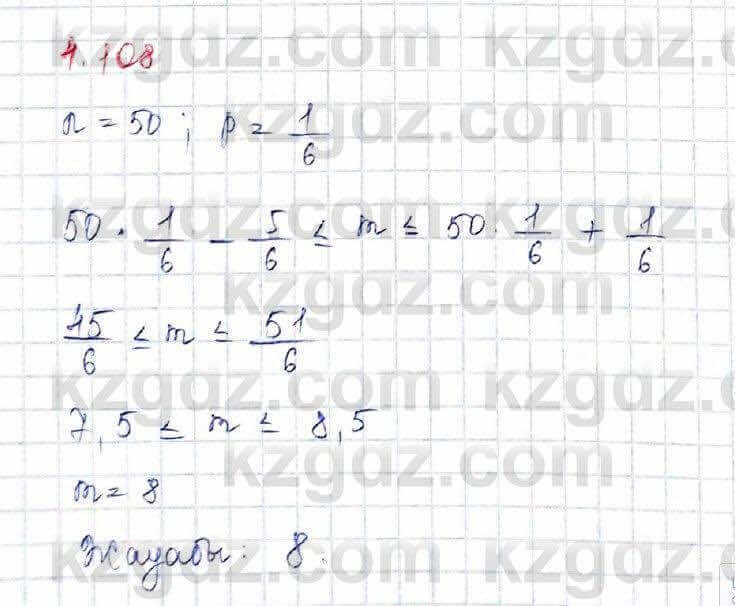 4.108
n = 50 ; p = 1/6
50 · 1/6 - 5/6 ≤ m ≤ 50 · 1/6 + 1/6
45/6 ≤ m ≤ 51/6
7,5 ≤ m ≤ 8,5
m = 8
Жауабы: 8.
kzgdz.com
kzgdz.com
kzgdz.com
kzgdz.com
kzgdz.com
kzgdz.com
kzgdz.com
kzgdz.com